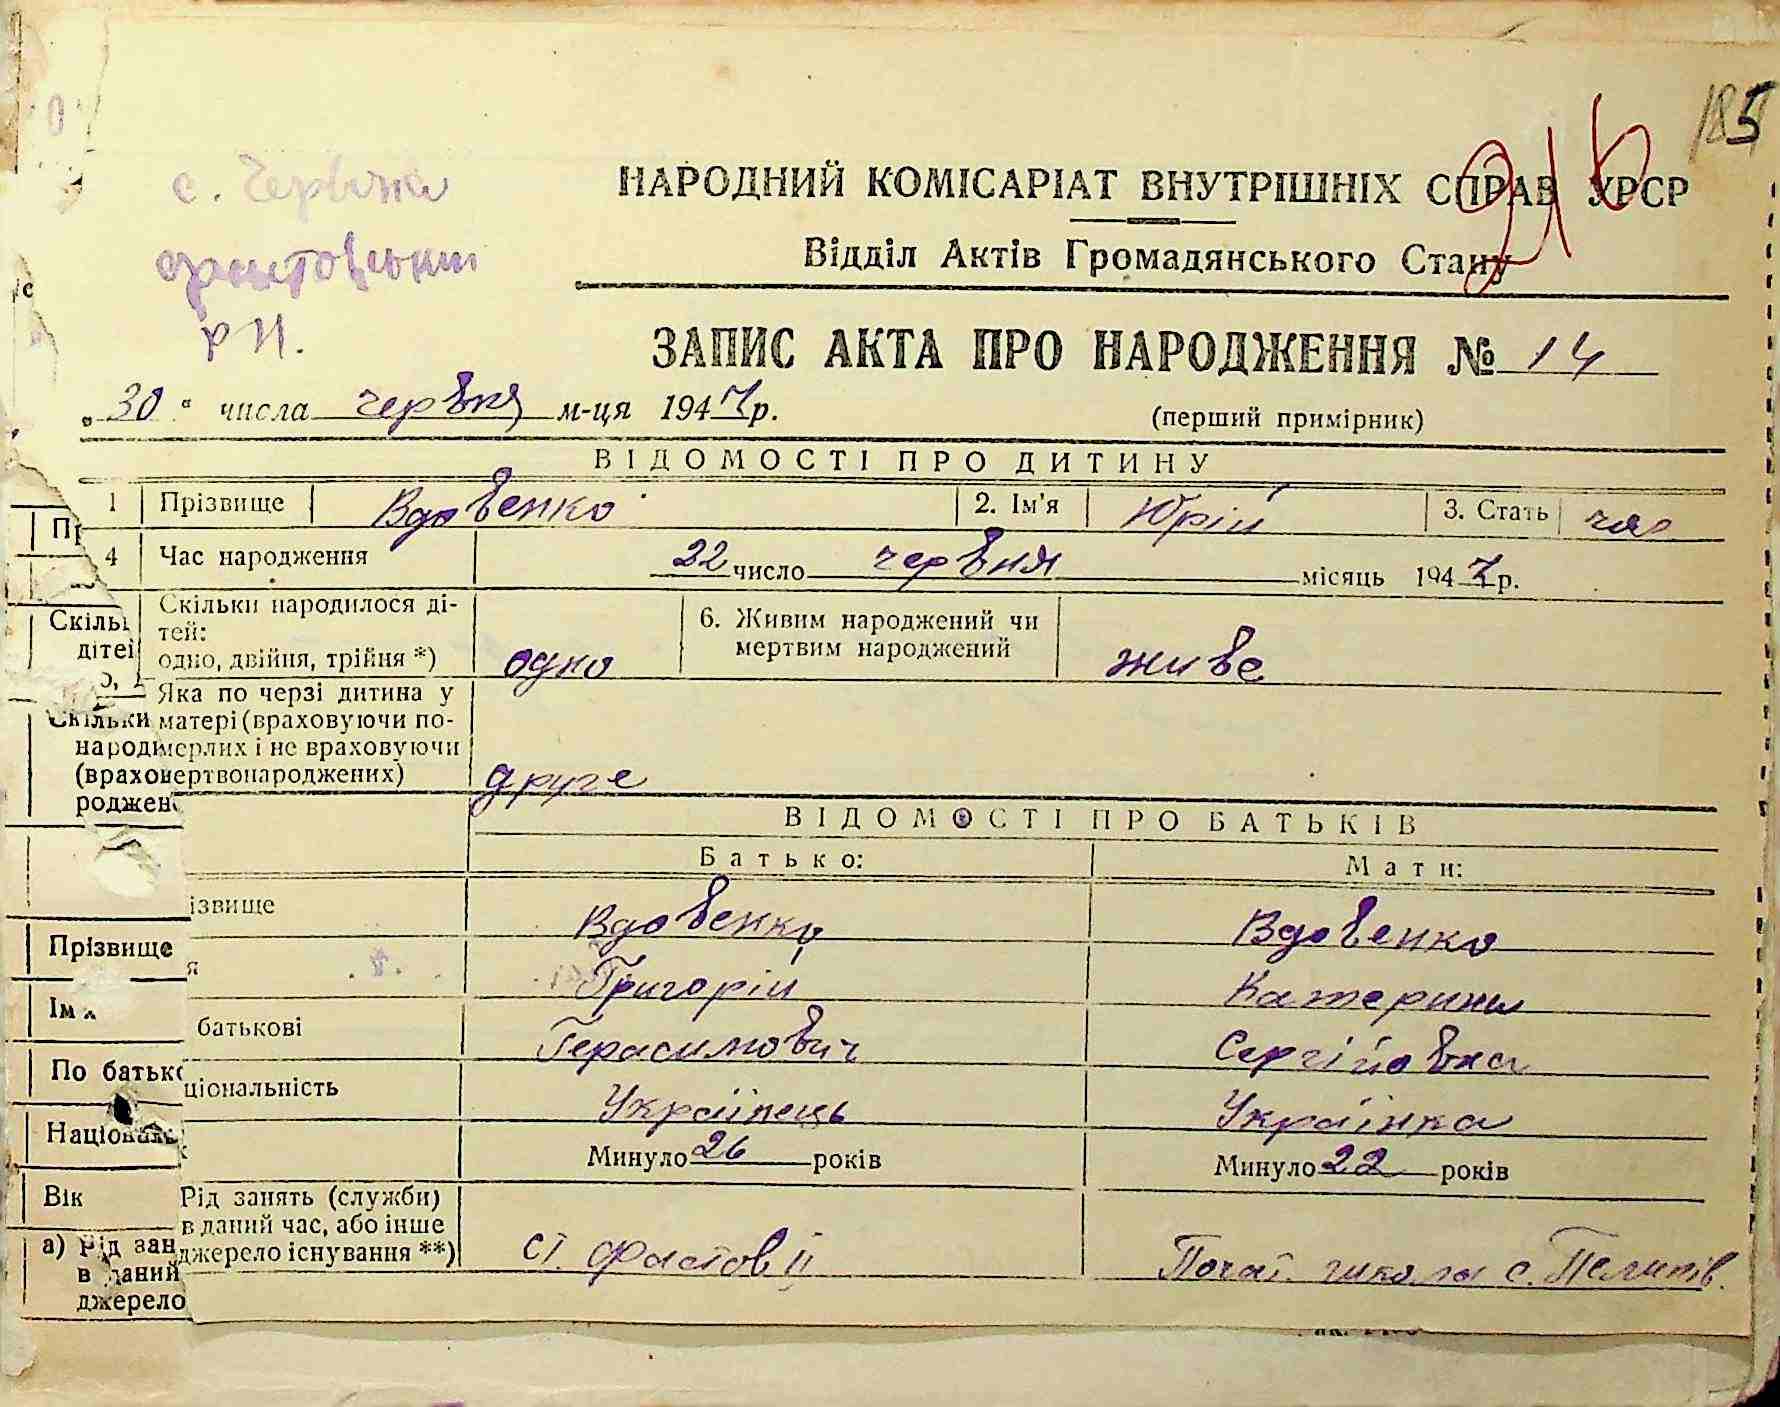 185
216
с. Червона
фастовський
р-н.
НАРОДНИЙ КОМІСАРІАТ ВНУТРІШНІХ СПРАВ УРСР
Відділ Актів Громадянського Стану
ЗАПИС АКТА ПРО НАРОДЖЕННЯ № 14
„30“ числа червня м-ця 1947 р. (перший примірник)
ВІДОМОСТІ ПРО ДИТИНУ
1 Прізвище Вдовенко 2. Ім'я Юрій 3. Стать чол
4 Час народження 22 число червня місяць 1947 р.
Скільки народилося ді-
тей:
одно, двійня, трійня *) одно 6. Живим народжений чи
мертвим народжений живе
Яка по черзі дитина у
матері (враховуючи по-
мерлих і не враховуючи
мертвонароджених) друге
ВІДОМОСТІ ПРО БАТЬКІВ
Батько: Мати:
ізвище Вдовенко Вдовенко
я Григорій Катерина
батькові Герасимович Сергійовна
ціональність Українець Українка
Минуло 26 років Минуло 22 років
Рід занять (служби)
в даний час, або інше
джерело існування **) ст. Фастов II Почат. школа с.
Скільк
дітей
Скільки
народи
(врахов
роджен
Прізвище
Ім'я
По батьк
Націонал
Вік
а) Рід зан
в даний
джерело